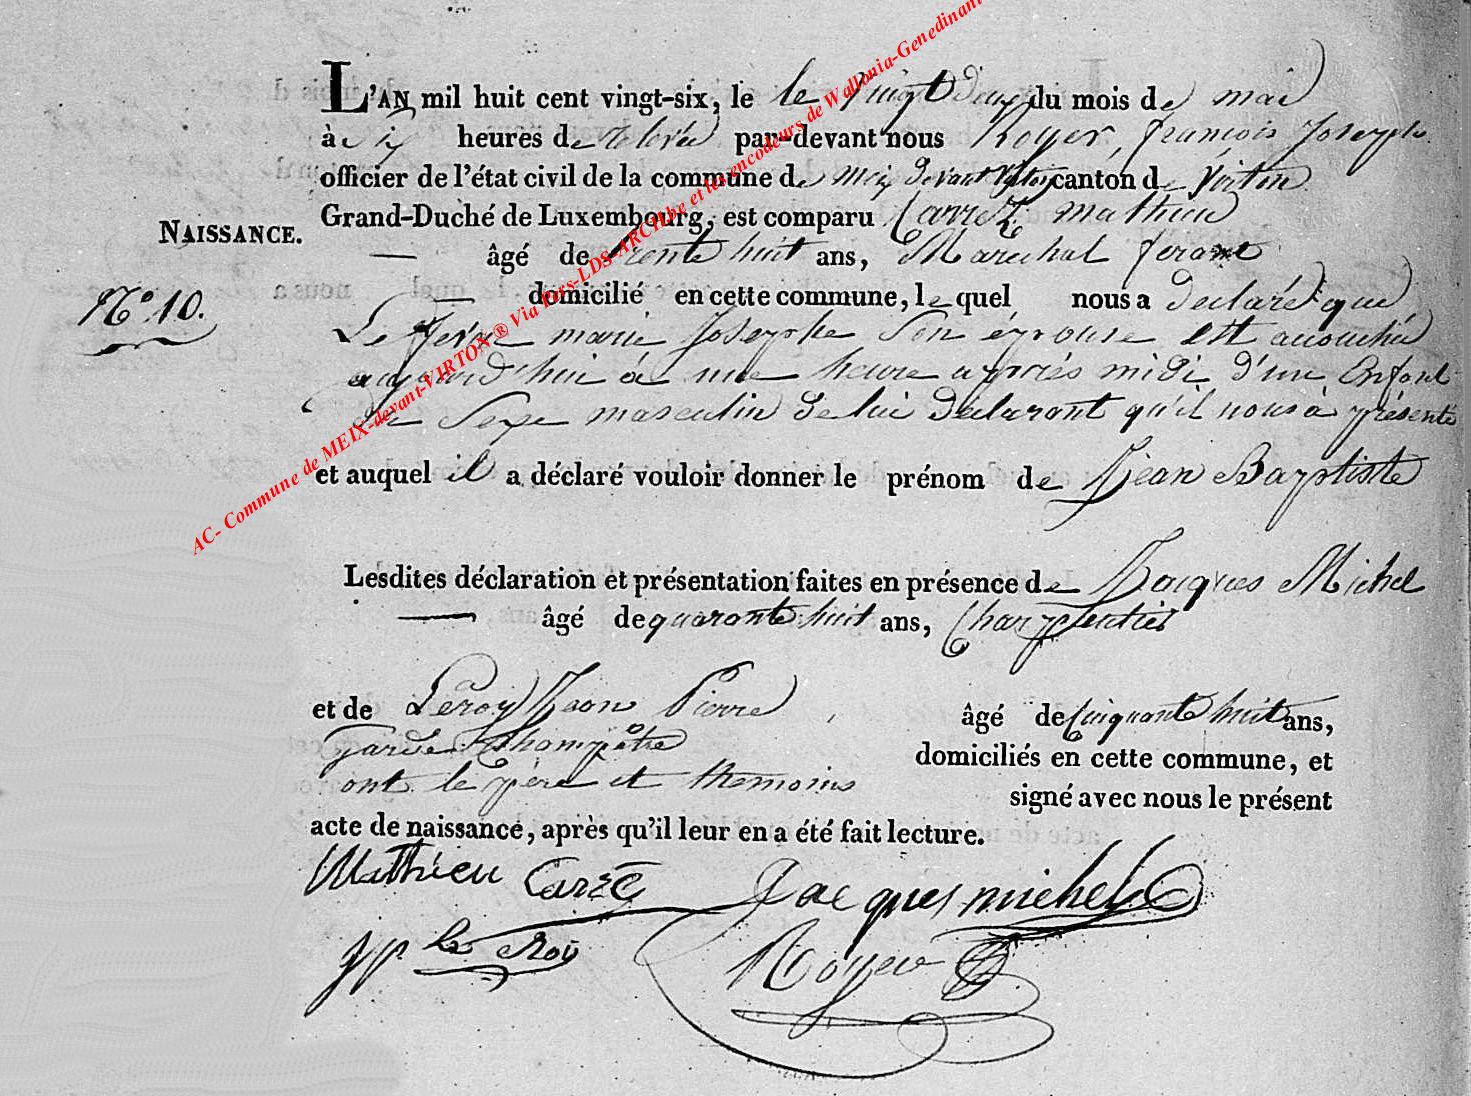 L'AN mil huit cent vingt-six, le le vingt deux du mois de mai
à six heures de relevée par-devant nous Royer, françois Joseph
officier de l'état civil de la commune de meix devant virton canton de virton
Grand-Duché de Luxembourg, est comparu Carrez mathieu
NAISSANCE.
âgé de trente huit ans, Marechal ferant
N.° 10.
domicilié en cette commune, lequel nous a declaré que
marie Josephe Son épouse est acouchée
aujourd'hui à une heure après midi d'un Enfant
de Sexe masculin de lui declarant qu'il nous à présenté
et auquel il a déclaré vouloir donner le prénom de Jean Baptiste
Lesdites déclaration et présentation faites en présence de Jacques Michel
âgé de quarante huit ans, Charpentier
et de Leroy Jean Pierre, âgé de Cinquante huit ans,
garde Champêtre domiciliés en cette commune, et
ont le père et themoins signé avec nous le présent
acte de naissance, après qu'il leur en a été fait lecture.
Mathieu Carez Jacques michel
jp le Roy Royer
AC- Commune de MEIX-devant-VIRTON ® Via Pers-LDS-ARCH.be et les encodeurs de Wallonia-Genedinant